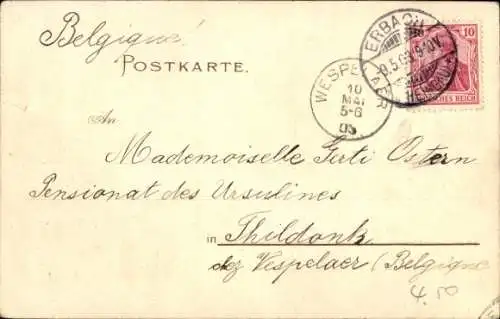 Belgique!
POSTKARTE.
ERBACH
9.5.03.9-10V.
10
DEUTSCHES REICH
WESPELAER
10
MAI
5-6
03
An
Mademoiselle Gerti Ostern
Pensionat des Ursulines
in Thildonk
chez Vespelaer (Belgique
4.50